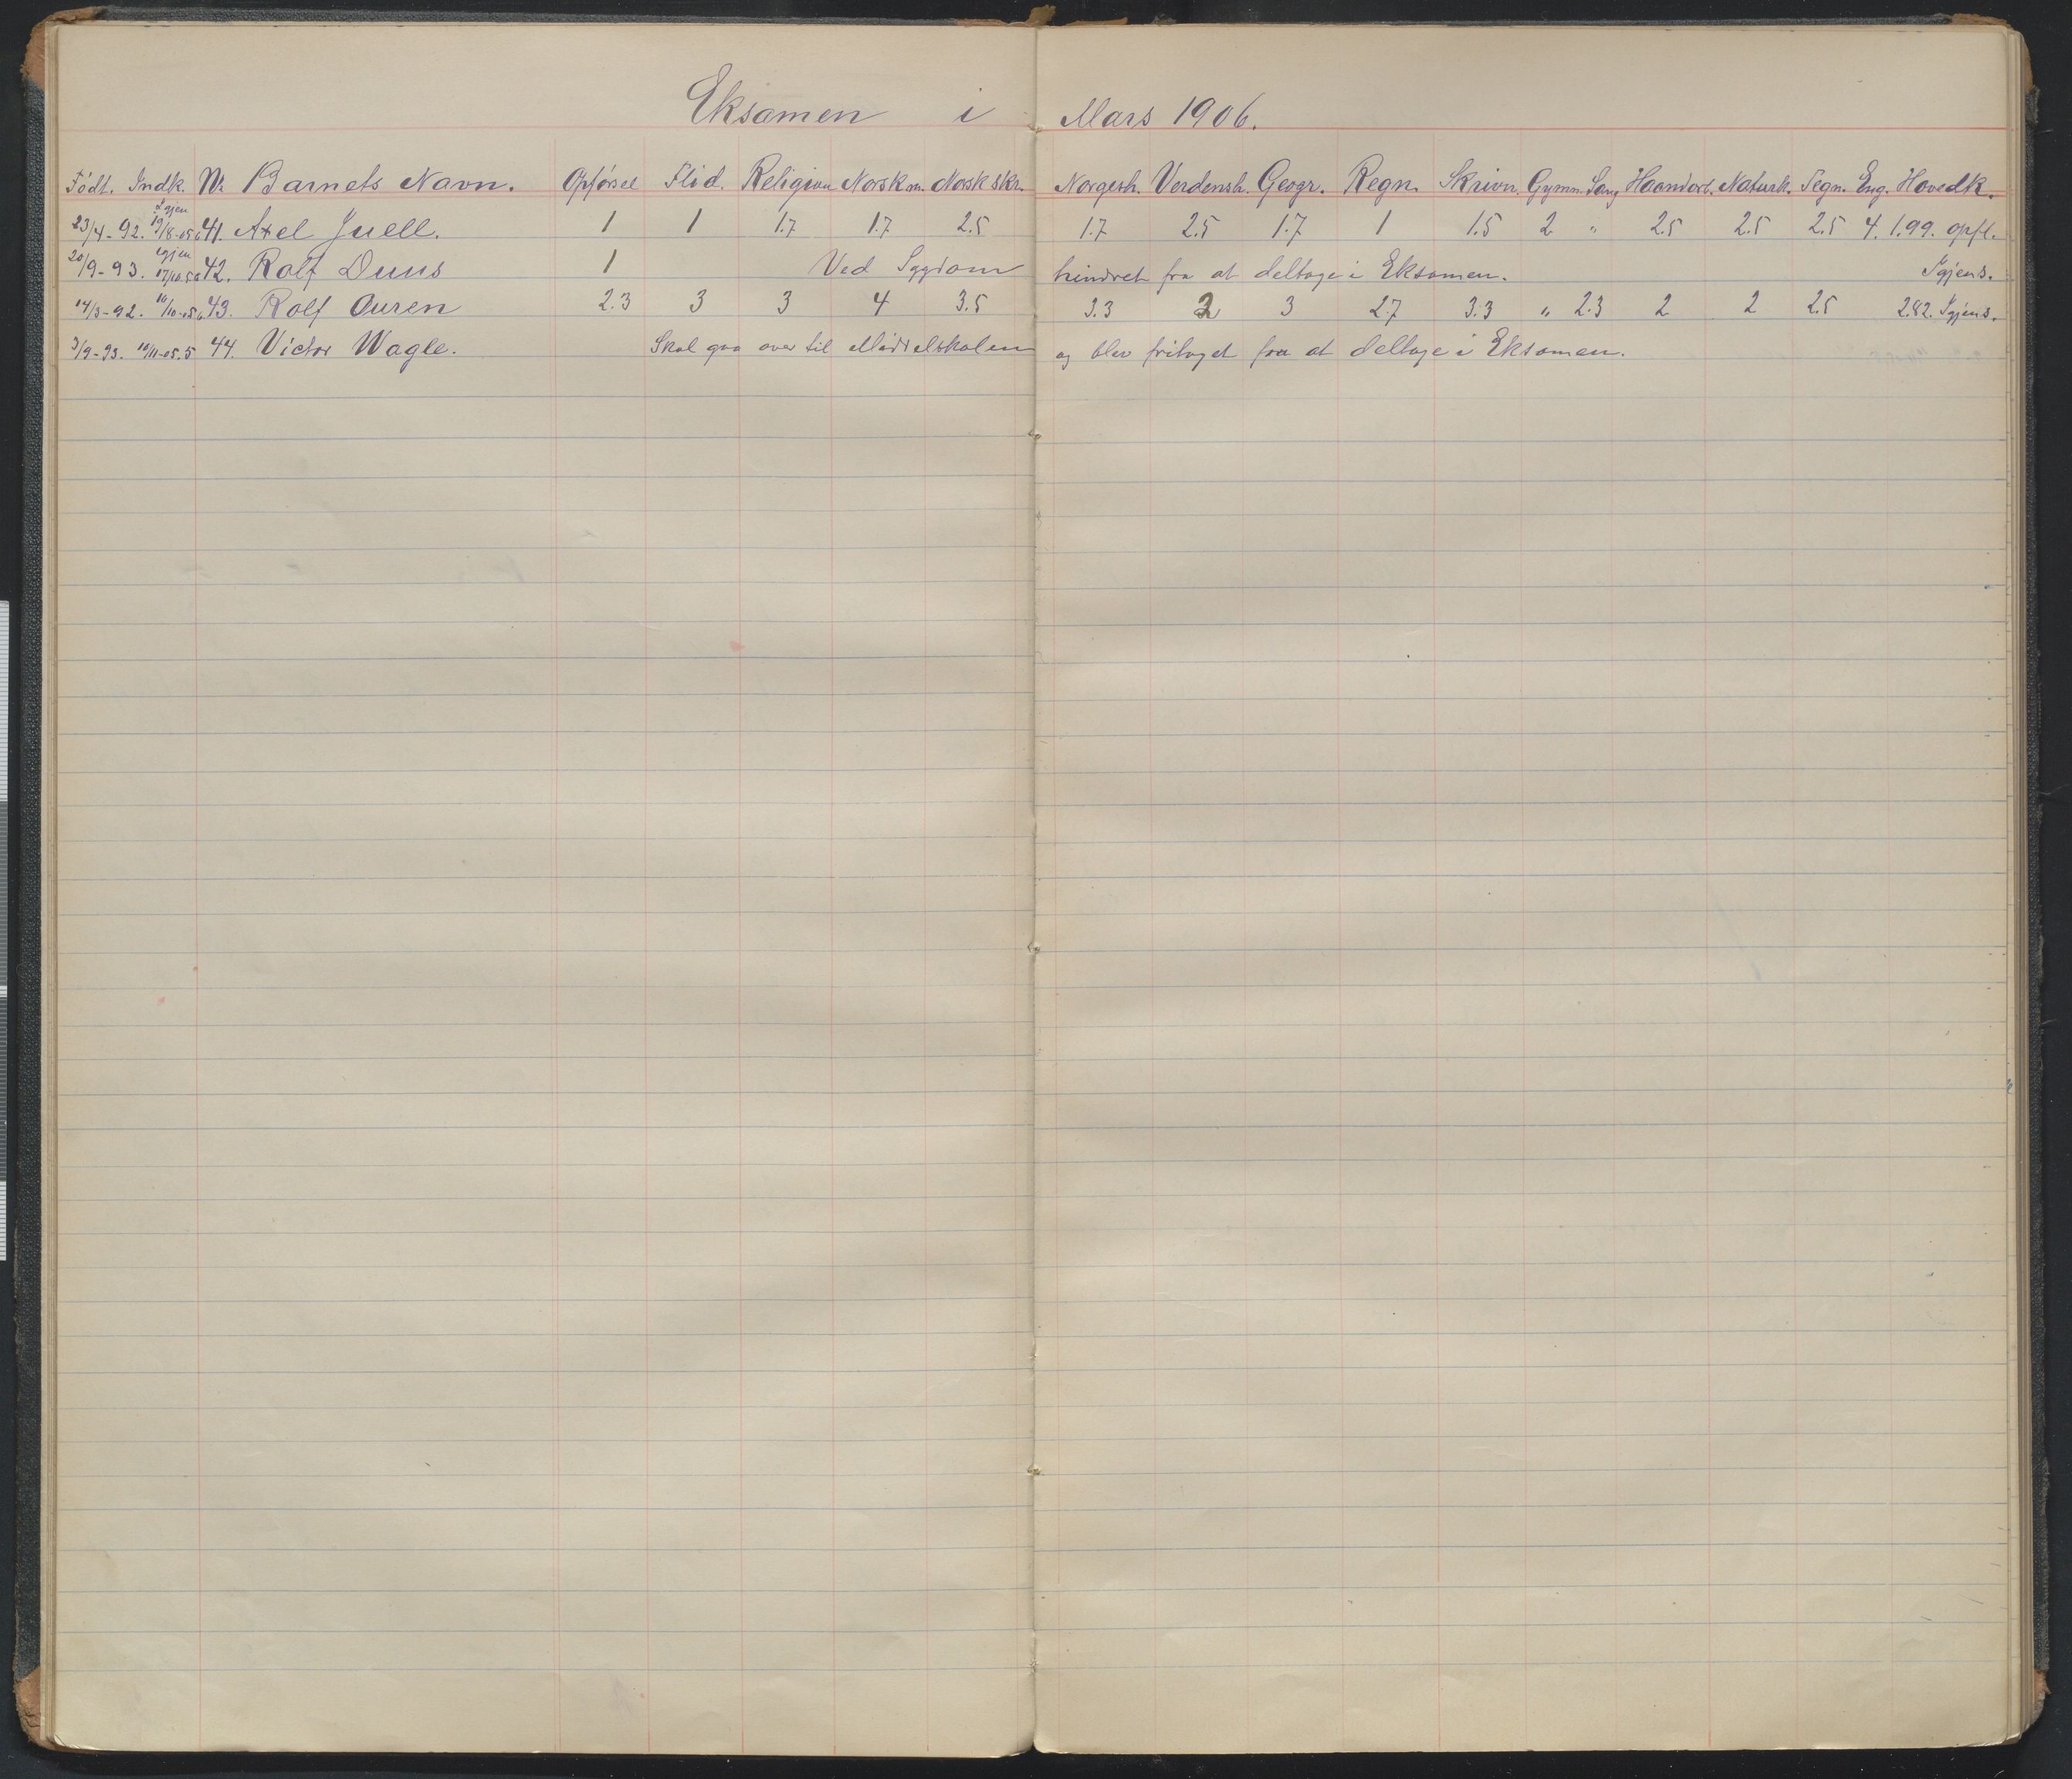 Eksamen i Mars 1906.
Født. Indk. Nr Barnets Navn. Opførsel Flid. Religion Norsk m. Norsk skr. Norgesh. Verdensh. Geogr. Regn. Skrivn. Gymn. Sang Haandarb. Naturk. Tegn. Eng. Hovedk.
Igjen
23/4-92. 19/8-05 6 41. Axel Juell. 1 1 1.7 1.7 2.5 1.7 2.5 1.7 1 1.5 2 " 2.5 2.5 2.5 4. 1.99. opfl.
igjen
20/9-93. 42. Rolf Duus 1 Ved Sygdom hindret fra at deltage i Eksamen. Igjens.
14/3-92. 10/10-05 6. 43. Rolf Auren 2.3 3 3 4 3.5 3.3 3 2.7 3.3 " 2.3 2 2 2.5 2.82. Igjens.
3/9-93. 10/11-05. 5 44. Victor Wagle. Skal gaa over til Middelskolen og blev fritaget fra at deltage i Eksamen.